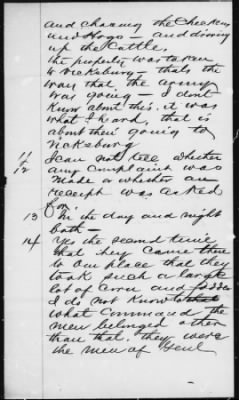 and chasing the Chickens
and Hogs - and driving
up the Cattle.
the property was taken
to Vicksburg - thats the
way that the army
was going - I dont
know about this, it was
what I heard, that is
about their going to
Vicksburg
11 I can not tell whether
12 any complaint was
made or whether any
receipt was asked
for
13 In the day and night
both -
14 Yes the second time
that they came there
to our place that they
took such a large
lot of Corn and fodder
I do not know
what command the
men belonged other
than that, they were
the men of Genl